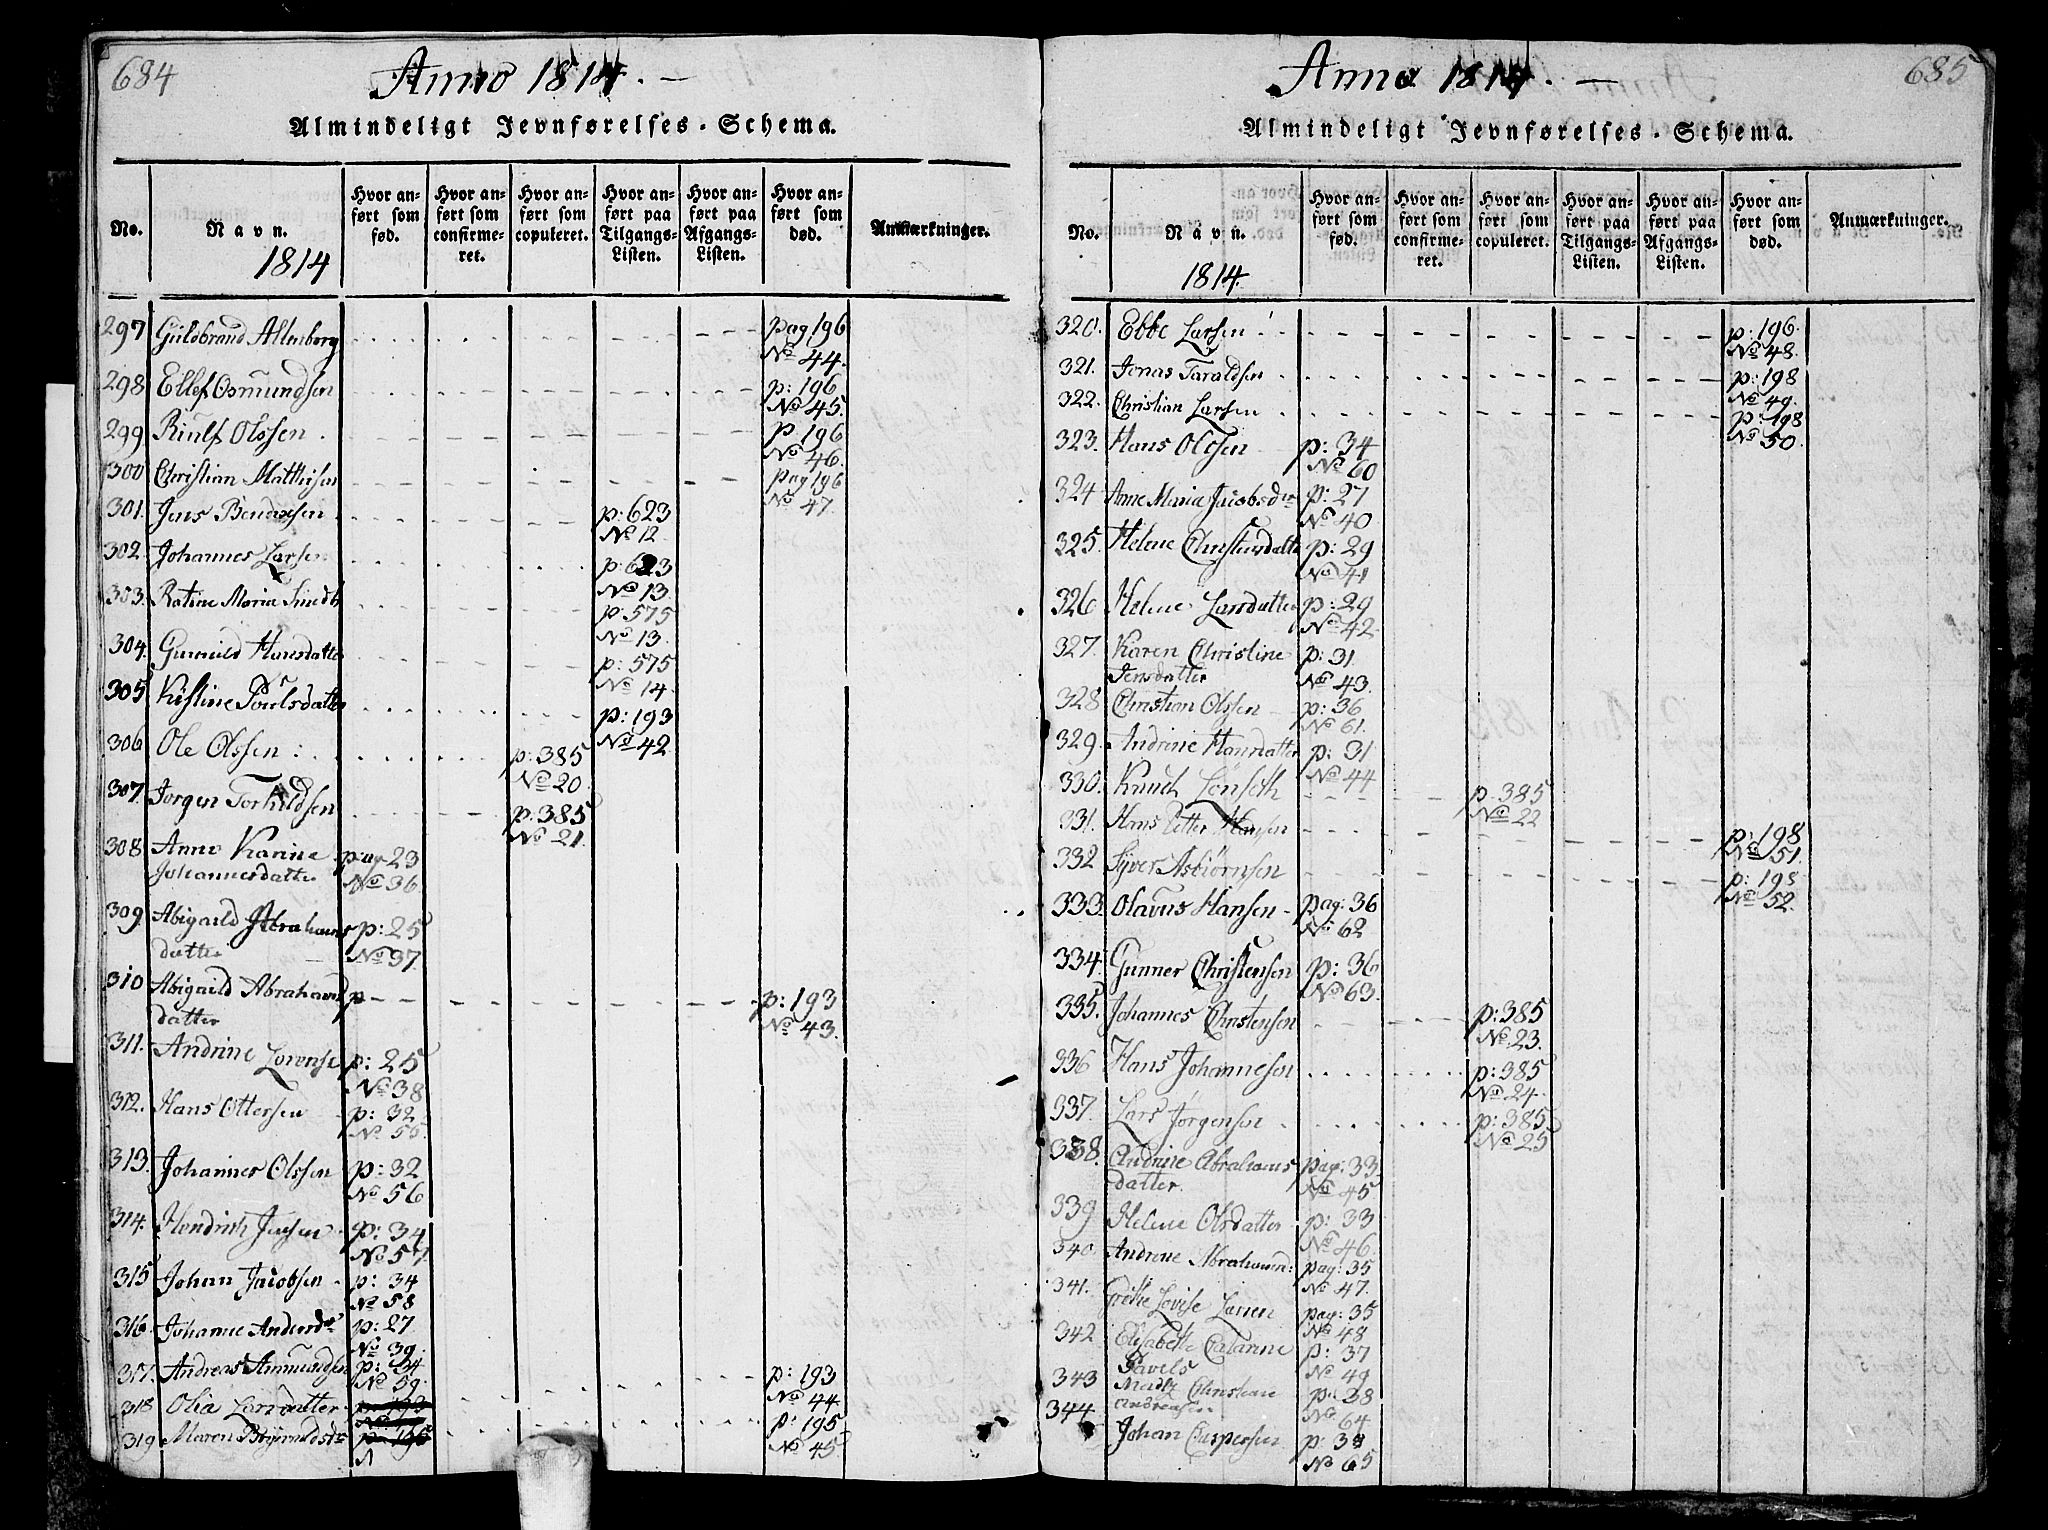 684
Anno 1814. —
Almindeligt Jevnførelses-Schema.
No.
Navn.
1814
Hvor anført som fød.
Hvor anført som confirmeret.
Hvor anført som copuleret.
Hvor anført paa Tilgangs-Listen.
Hvor anført paa Afgangs-Listen.
Hvor anført som død.
Anmærkninger.
297 Guldbrand Altenborg pag 196 No 44.
298 Ellef Osmundsen p: 196 No 45.
299 Riulf Olssen p 196 No 46.
300 Christian Matthisen pag 196 No 47.
301. Jens Bendixsen p: 623 No 12
302. Johannes Larsen p: 623 No 13
303. Maria Smedt p: 575 No 13.
304. Gunnild Hansdatter p: 575 No 14.
305 Kistine Poulsdatter p: 193 No 42.
306 Ole Olssen p: 385 No 20.
307. Jorgen Torkildsen p: 385 No 21.
308. Anne Karine
Johannesdatter pag 23 No 36.
309. Abigaild Abrahams
datter p: 25 No 37.
310 Abigaild Abrahams
datter p: 193 No 43.
311. Andrine Lorense p: 25 No 38
312. Hans Ottersen p: 32 No 55.
313. Johannes Olssen p: 32 No 56
314. Hendrich Jensen p: 34 No 57.
315 Johan Jacobsen p: 34 No 58
316. Johanne Andersdr p: 27 No 39.
317. Andreas Ammundsen p: 34 No 59.
318 Olia Larsdatter p: 193 No 44
319 Maren p: 195 No 45.
685
Anno 1814. —
Almindeligt Jevnførelses-Schema.
No.
Navn.
1814.
Hvor anført som fød.
Hvor anført som confirmeret.
Hvor anført som copuleret.
Hvor anført paa Tilgangs-Listen.
Hvor anført paa Afgangs-Listen.
Hvor anført som død.
Anmærkninger.
320. Ebbe Larsen p: 196. No 48.
321. Jonas Taraldsen p: 198 No 49.
322. Christian Larsen p: 198 No 50.
323. Hans Olssen p: 34 No 60
324 Anne Maria Jacobsdr p: 27 No 40
325. Helene Christensdatter p: 29 No 41
326 Helene Larsdatter p: 29 No 42
327. Karen Christine
Jensdatter p: 31. No 43.
328 Christian Olssen p: 36 No 61.
329. Andrine Hansdatter p: 31 No 44
330. Knuth Lønseth p. 385 No 22
331. Hans Petter Hansen p: 198 No 51.
332 Syver Asbiørnsen p: 198 No 52.
333. Olavus Hansen pag: 36 No 62
334. Gunner Christensen p: 36 No 63.
335. Johannes Christensen p: 385 No 23.
336 Hans Johannesen p: 385 No 24.
337. Lars Jørgensen p: 385 No 25
338. Andrine Abrahams
datter. pag: 33 No 45
339 Helene Olsdatter p: 33 No 46.
340. Andrine Abrahamsd: pag: 35 No 47.
341. Grethe Lovise Larsen pag: 35 No 48
342 Elisabeth Catarine
Pavels p: 37 No 49
343 Christian
Andreasen p: 38 No. 64
344 Johan Caspersen p: 38 No 65